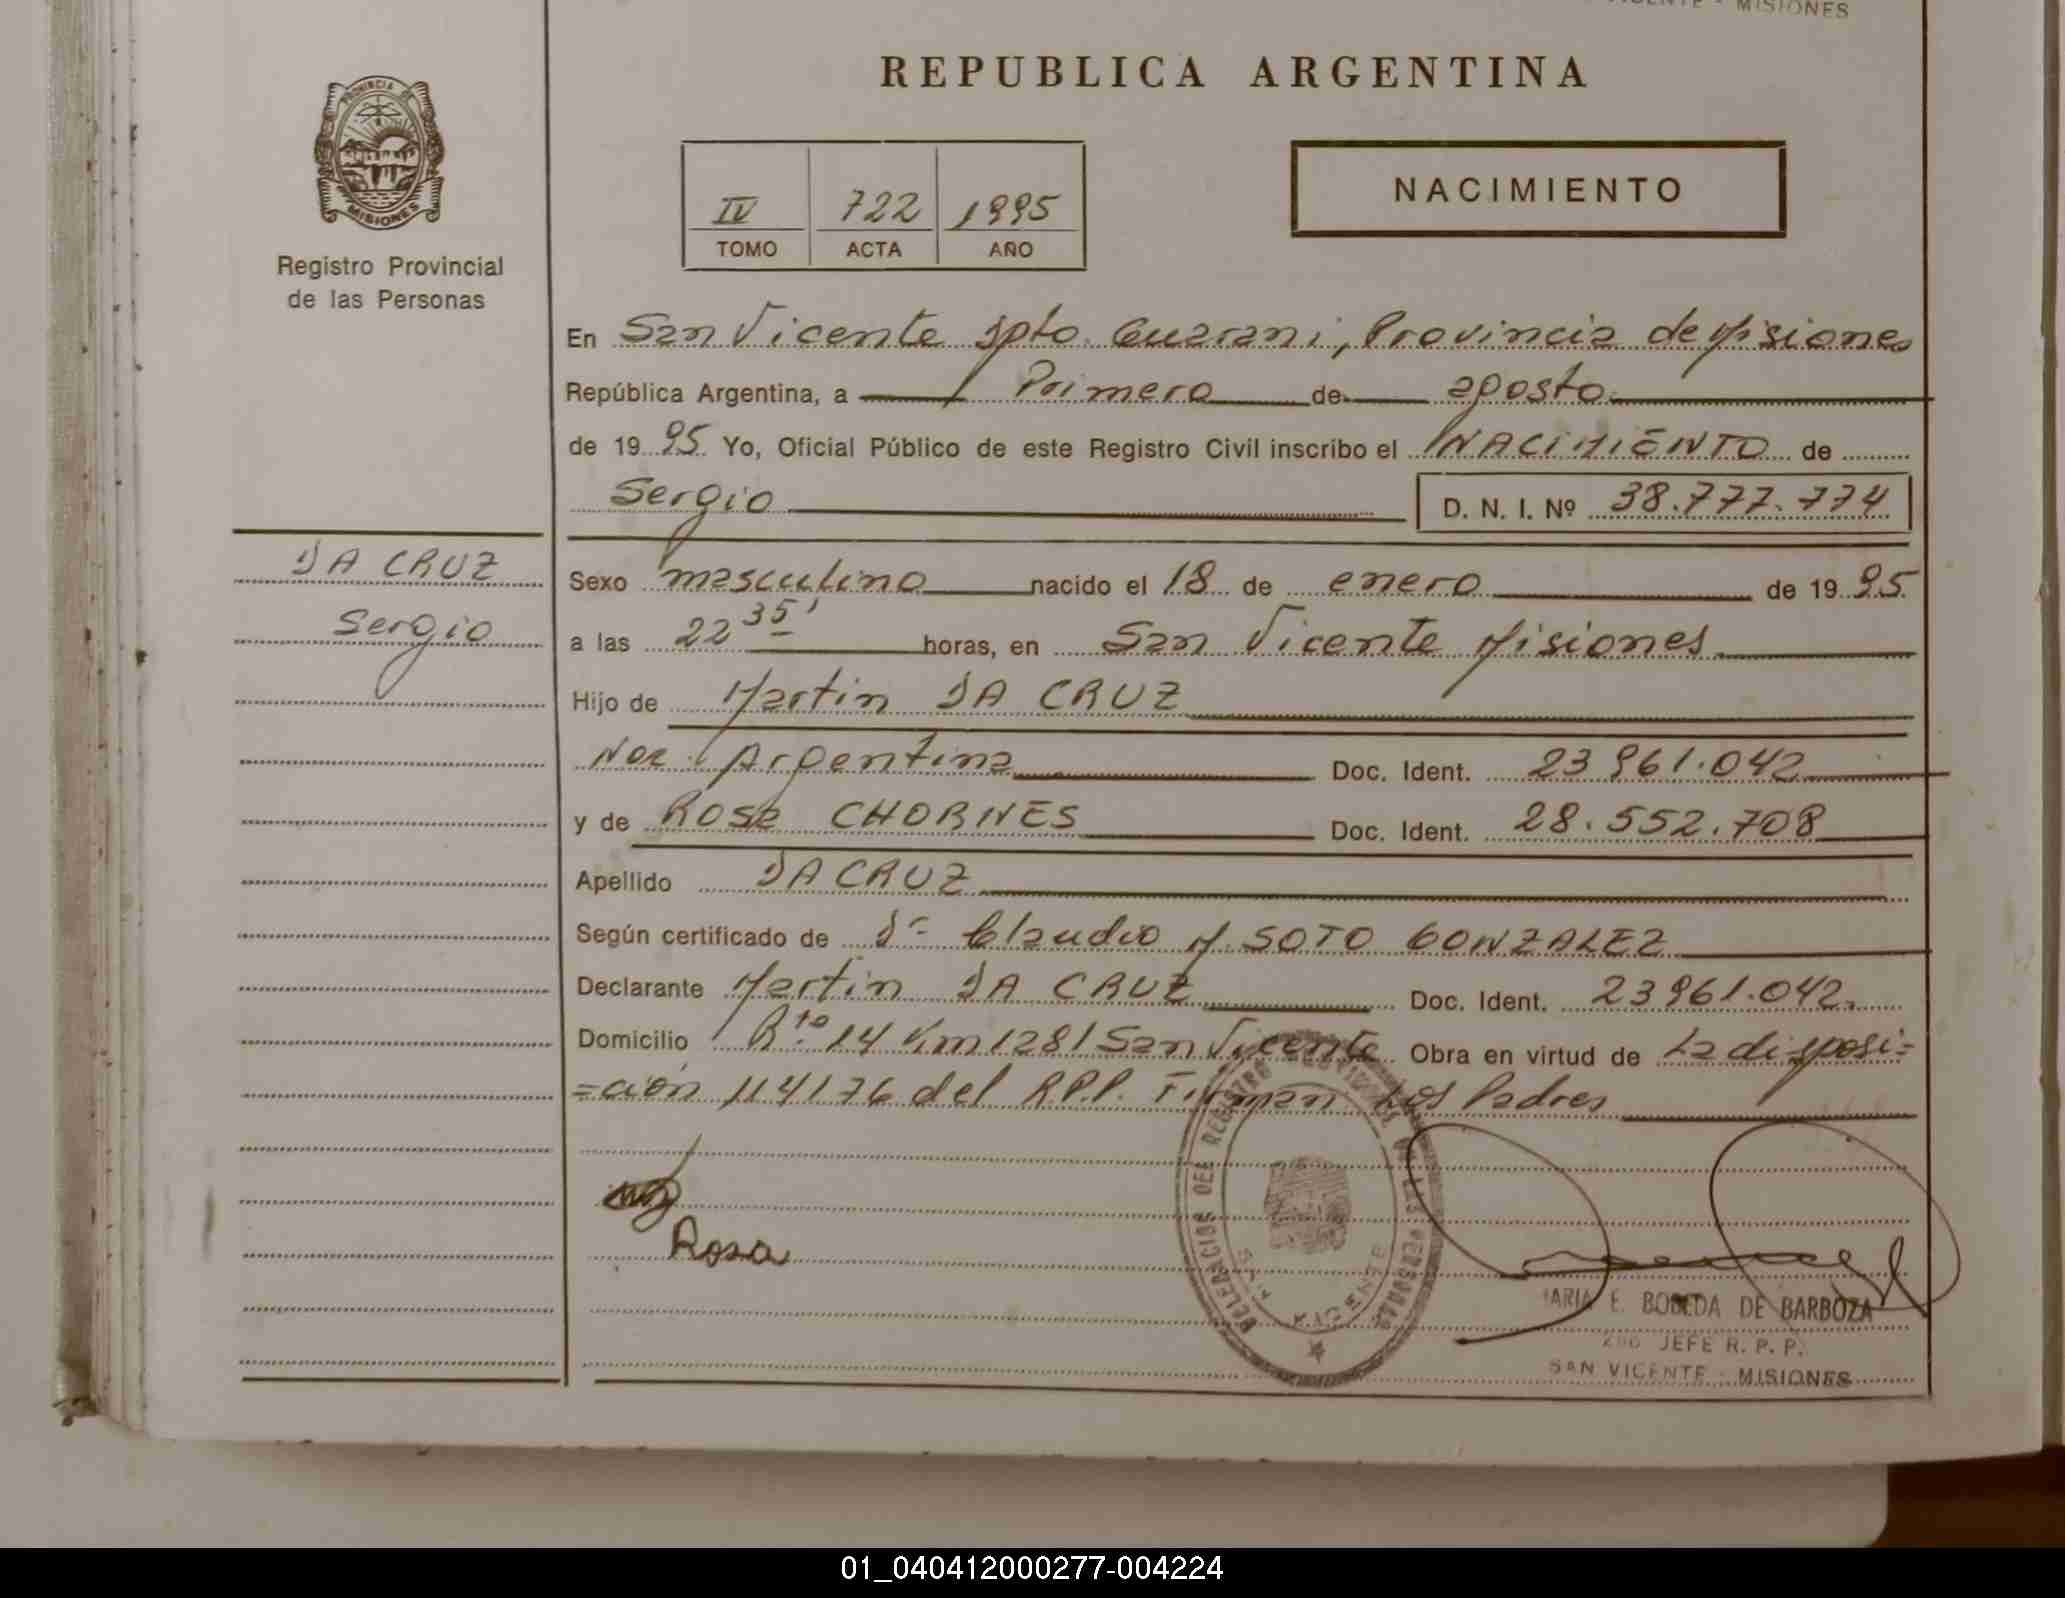 VICENTE - MISIONES
REPUBLICA ARGENTINA
PROVINCIA DE
MISIONES
Registro Provincial
de las Personas
IV 722 1995
TOMO ACTA AÑO
NACIMIENTO
En San Vicente Dpto. Guarani, Provincia de Misiones
República Argentina, a Primero de agosto
de 1995 Yo, Oficial Público de este Registro Civil inscribo el NACIMIENTO de
Sergio D. N. I. Nº 38.777.774
DA CRUZ
Sergio
Sexo masculino nacido el 18 de enero de 1995
a las 22 35' horas, en San Vicente Misiones
Hijo de Martin DA CRUZ
Nac. Argentina Doc. Ident. 23961.042
y de Rosa CHORNES Doc. Ident. 28.552.708
Apellido DA CRUZ
Según certificado de Dr. Claudio M. SOTO GONZALEZ
Declarante Martin DA CRUZ Doc. Ident. 23961.042
Domicilio Rta. 14 Km 1281 San Vicente Obra en virtud de La disposi=
=ción 114/76 del R.P.P. Firman Los Padres
Rosa
DELEGACION DEL REGISTRO PROVINCIAL DE LAS PERSONAS
SAN VICENTE
MARIA E. BOBEDA DE BARBOZA
2DO JEFE R. P. P.
SAN VICENTE - MISIONES
01_040412000277-004224